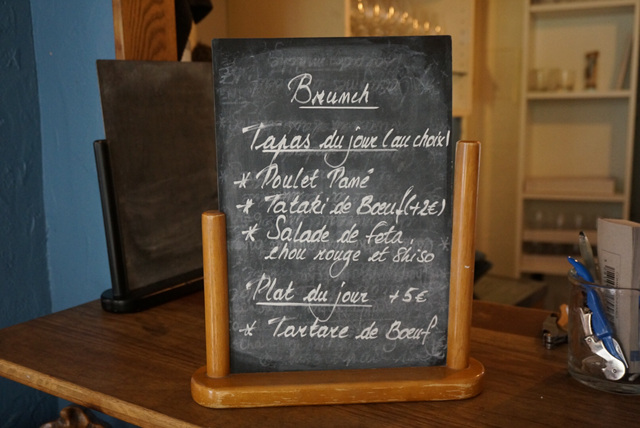 Brunch
Tapas du jour (au choix)
* Poulet Pané
* Tataki de Bœuf (+2€)
* Salade de feta,
chou rouge et Shiso
Plat du jour +5€
* Tartare de Bœuf